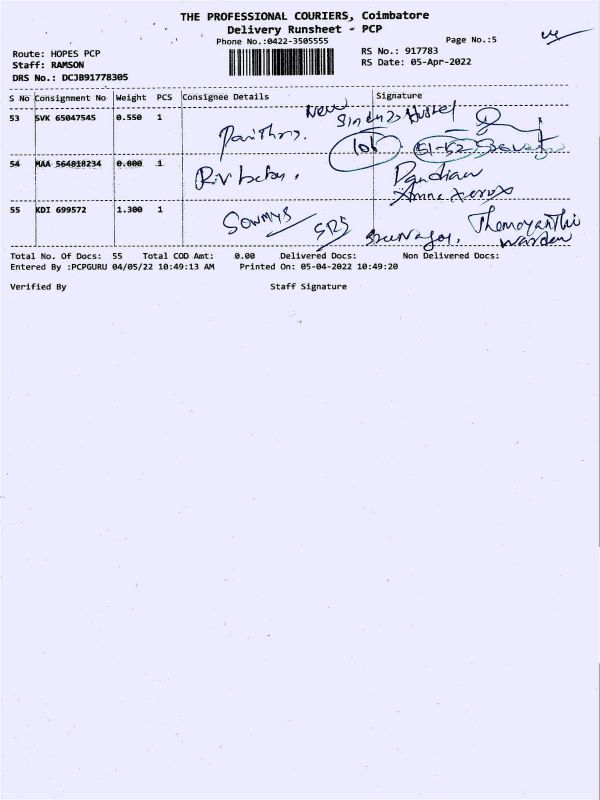 THE PROFESSIONAL COURIERS, Coimbatore
Delivery Runsheet - PCP
Phone No.:0422-3505555
Page No.:5
Route: HOPES PCP
RS No.: 917783
Staff: RAMSON
RS Date: 05-Apr-2022
DRS No.: DCJB91778305
S No Consignment No Weight PCS Consignee Details Signature
53 SVK 65047545 0.550 1
New
Hostel
106
54 MAA 564818234 0.800 1
R.V
Pandian
55 KDI 699572 1.300 1
Sowmys SRS
Warden
Total No. Of Docs: 55 Total COD Amt: 0.00 Delivered Docs: Non Delivered Docs:
Entered By :PCPGURU 04/05/22 10:49:13 AM Printed On: 05-04-2022 10:49:20
Verified By Staff Signature